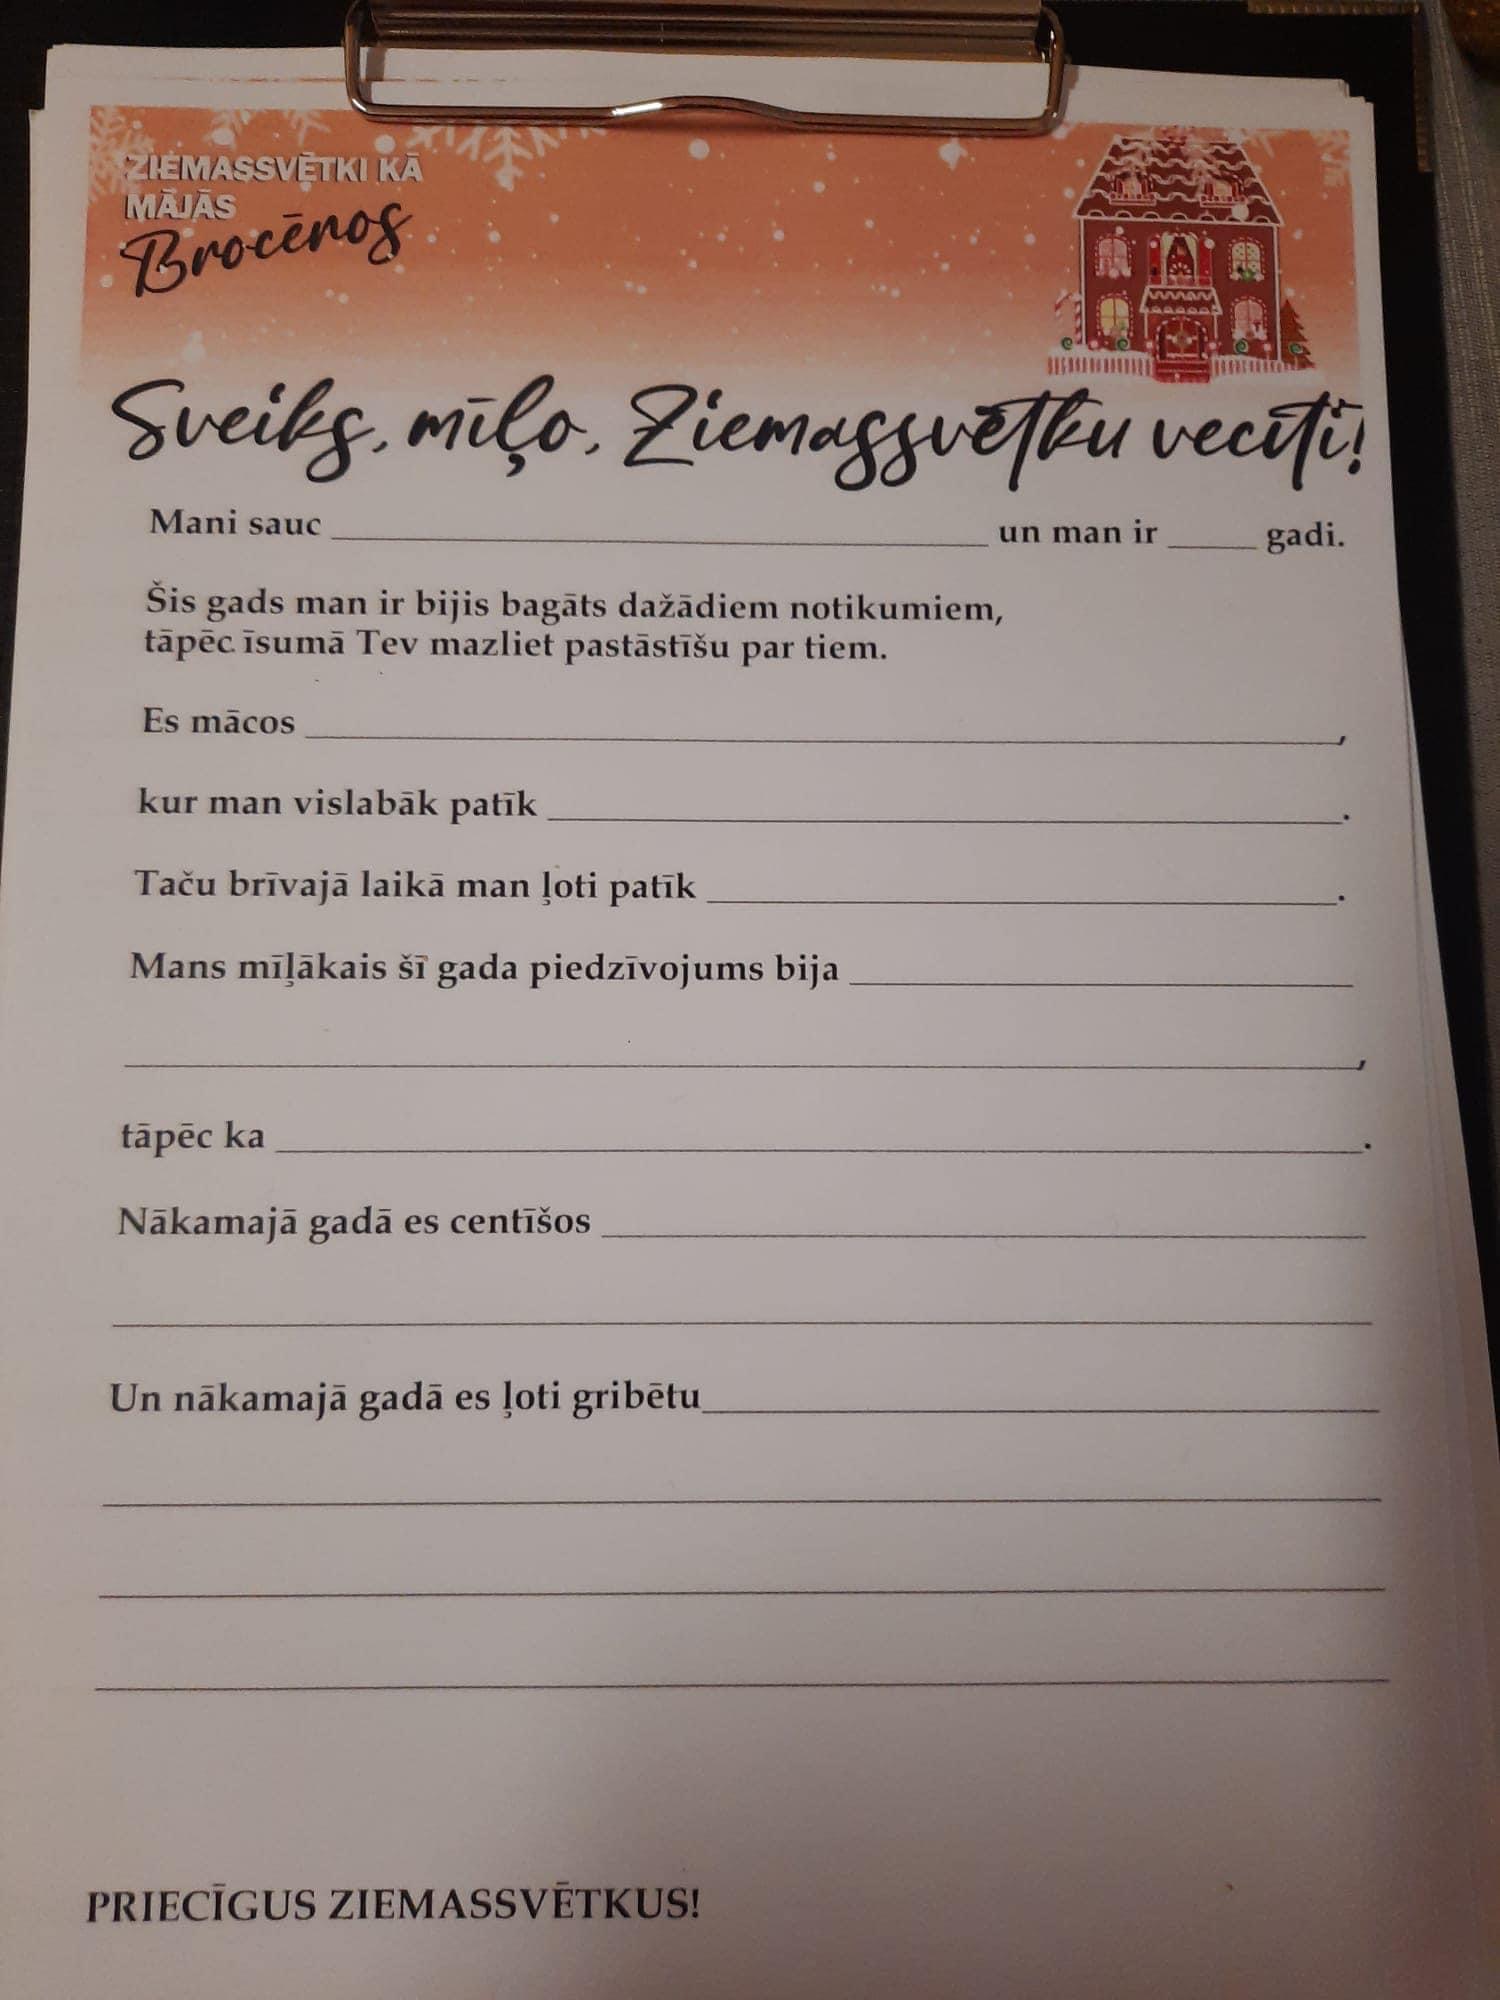 ZIEMASSVĒTKI KĀ
MĀJĀS
Brocēnos
Sveiks, mīļo, Ziemassvētku vecīti!
Mani sauc ______________ un man ir _____ gadi.
Šis gads man ir bijis bagāts dažādiem notikumiem,
tāpēc īsumā Tev mazliet pastāstīšu par tiem.
Es mācos ______________,
kur man vislabāk patīk ______________.
Taču brīvajā laikā man ļoti patīk ______________.
Mans mīļākais šī gada piedzīvojums bija ______________
______________,
tāpēc ka ______________.
Nākamajā gadā es centīšos ______________
Un nākamajā gadā es ļoti gribētu______________
PRIECĪGUS ZIEMASSVĒTKUS!